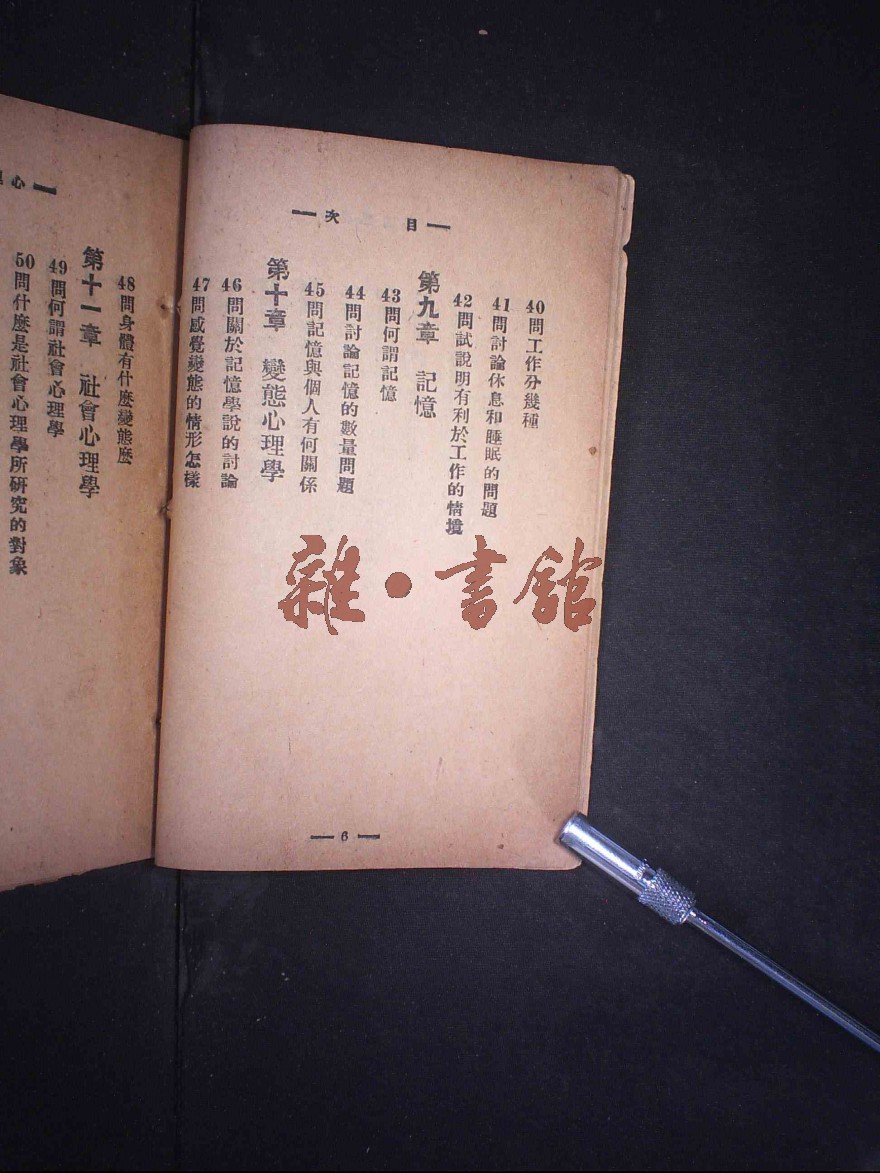 目次
40問工作分幾種
41問討論休息和睡眠的問題
42問試說明有利於工作的情境
第九章 記憶
43問何謂記憶
44問討論記憶的數量問題
45問記憶與個人有何關係
第十章 變態心理學
46問關於記憶學說的討論
47問感覺變態的情形怎樣
6
心
48問身體有什麼變態麼
第十一章 社會心理學
49問何謂社會心理學
50問什麼是社會心理學所研究的對象
雜·書館